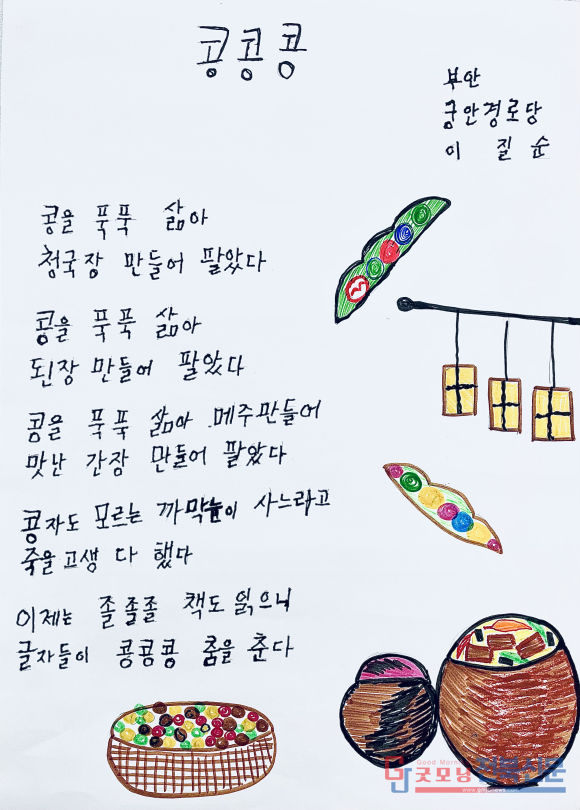 콩콩콩
부안
궁안경로당
이 질 순
콩을 푹푹 삶아
청국장 만들어 팔았다
콩을 푹푹 삶아
된장 만들어 팔았다
콩을 푹푹 삶아 메주만들어
맛난 간장 만들어 팔았다
콩자도 모르는 까막눈이 사느라고
죽을고생 다 했다
이제는 졸졸졸 책도 읽으니
글자들이 콩콩콩 춤을 춘다
Good Morning
굿모닝전북신문